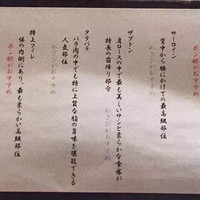 ポン酢がおすすめ
サーロイン
背中から腰にかけての最高級部位
わさびがおすすめ
ザブトン
肩ロースの中で最も美しいサシと柔らかな食感が
特長の霜降り部分
わさびがおすすめ
タテバラ
バラ肉の中でも特に上質な脂の旨味を堪能できる
人気部位
特上フィレ
体の内側にあり、最も柔らかい高級部位
ポン酢がおすすめ